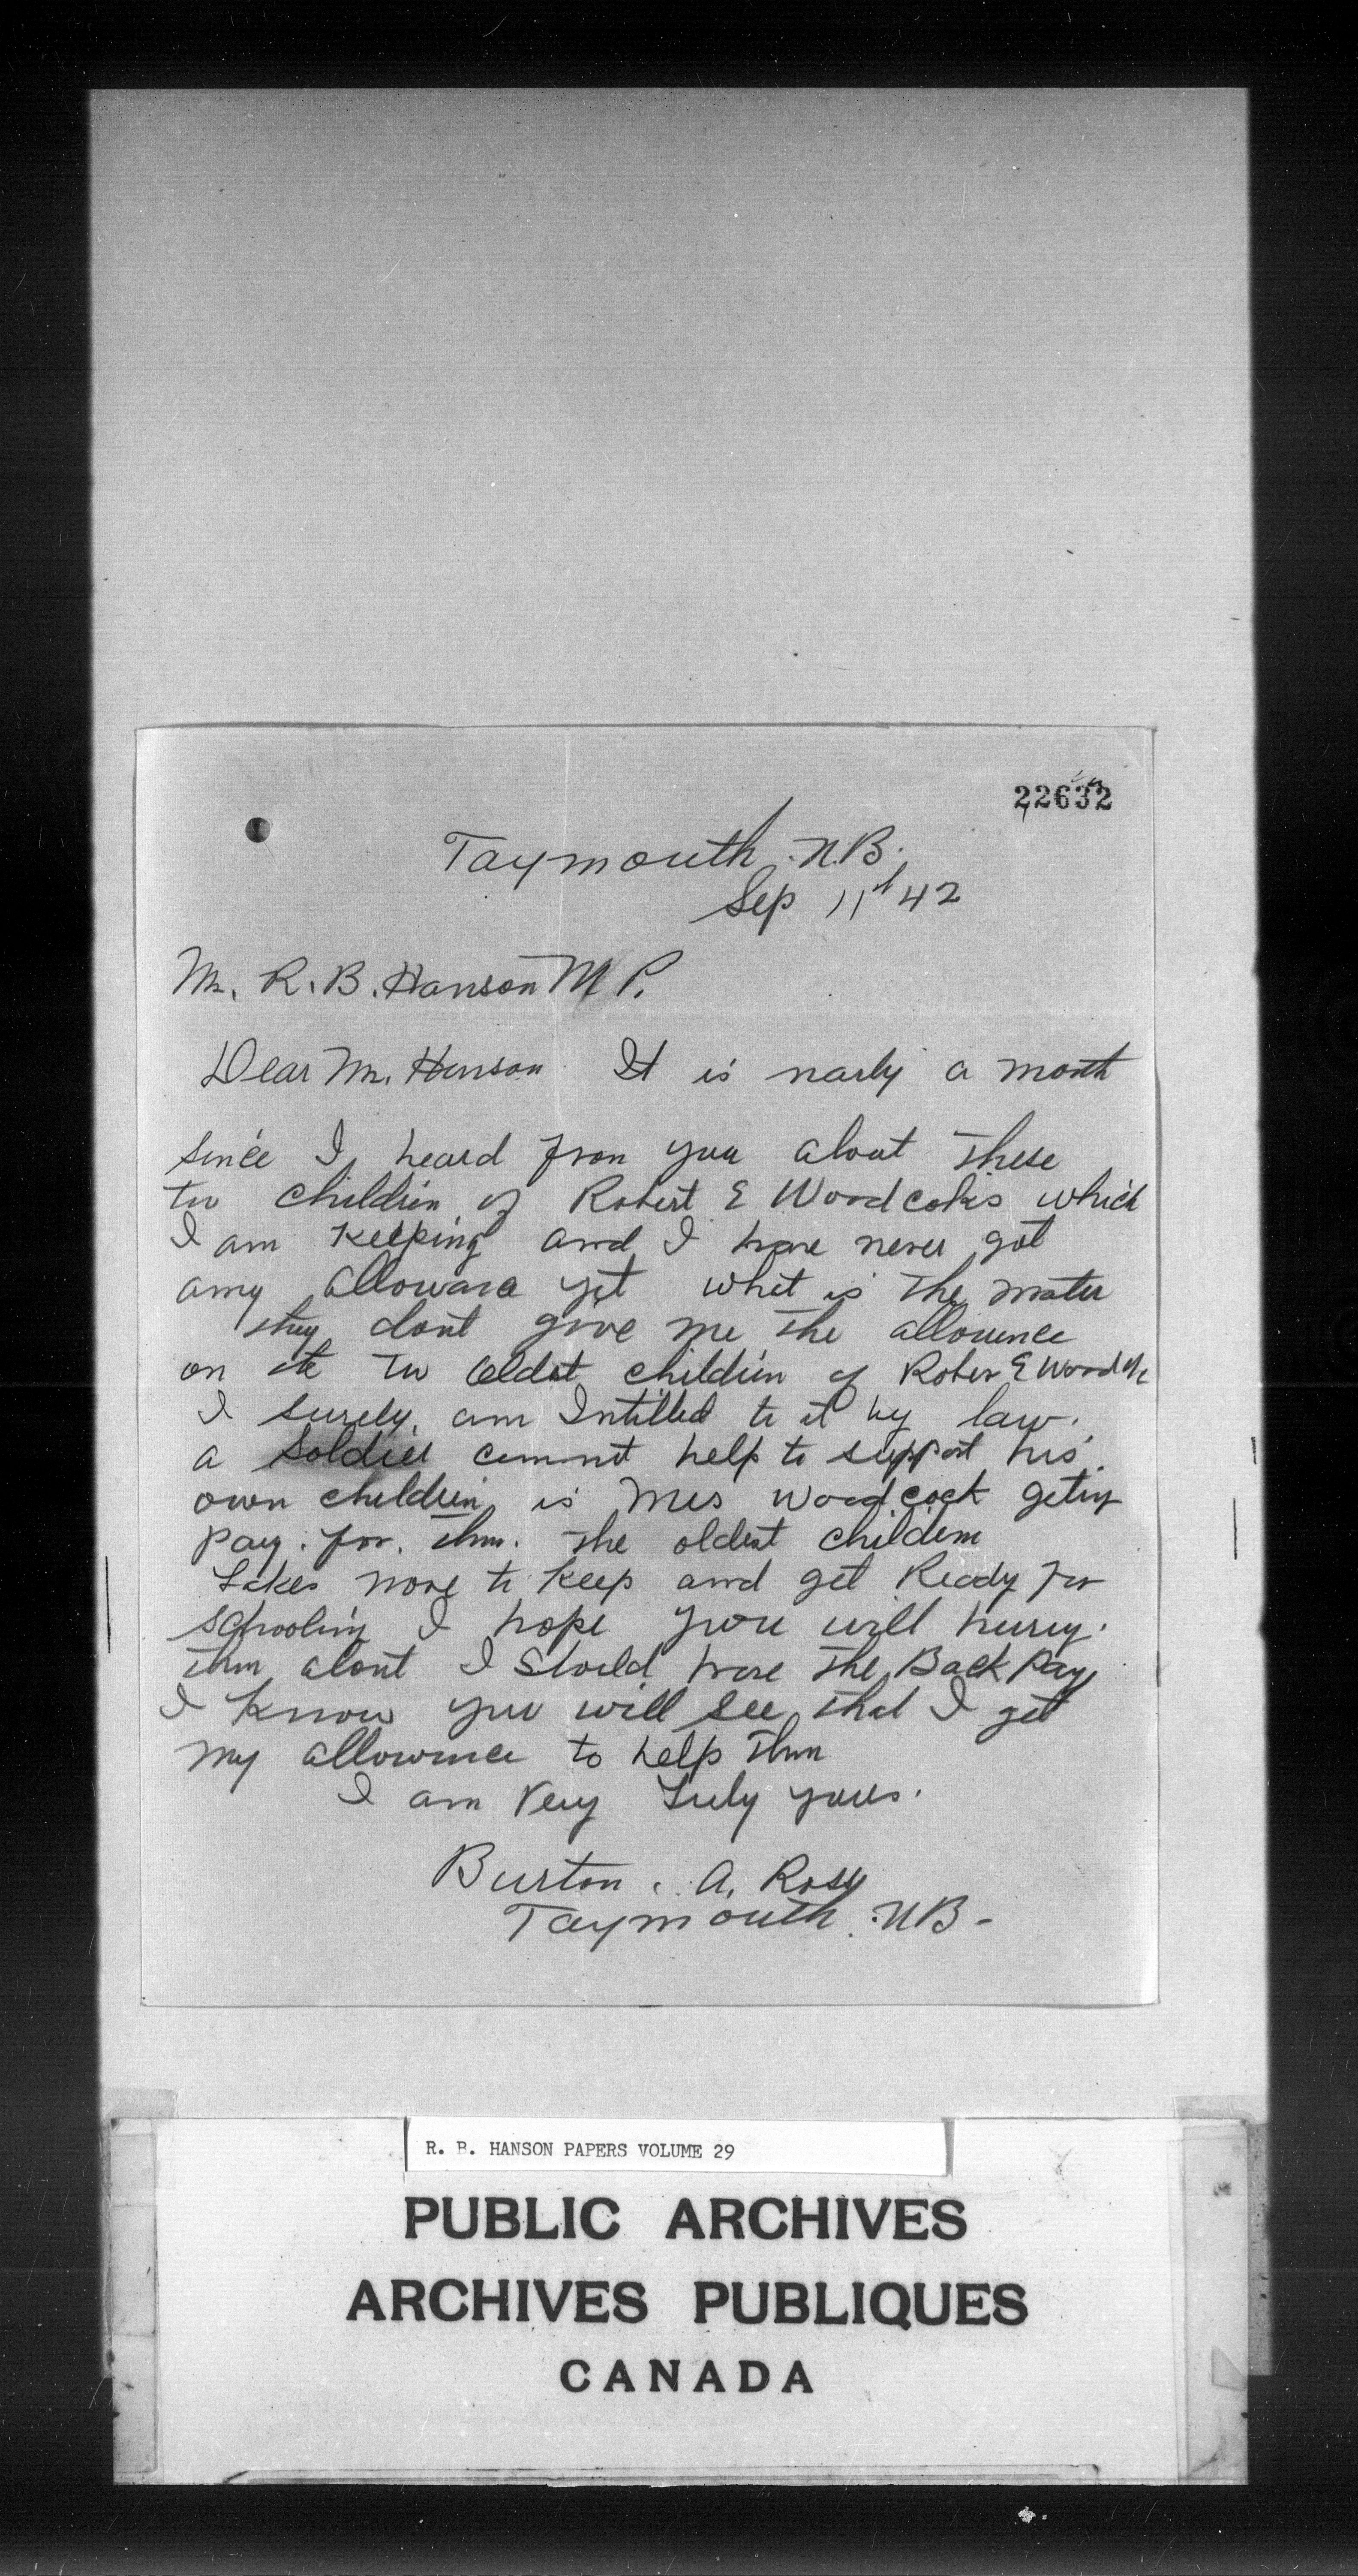 22632
Taymouth, N.B.
Sep 11th 42
Mr. R. B. Hanson M P.
Dear Mr. Hanson It is narly a month
since I heard from you about these
two children of Robert E Woodcoks which
I am keeping and I have never got
any allowara yet what is the mater
they dont give me the allowence
on the two oldest children of Rober E
I surely am Intitled to it by law.
a soldier cannot help to support his
own children is Mrs Woodcock geting
pay. for. them. The oldest children
takes more to keep and get Ready for
schooling I hope you will hurry.
them about I Should have the Back Pay
I know you will see that I get
my allowence to help them
I am Very Truly yours.
Burton. A. Ross
Taymouth. NB-
R. B. HANSON PAPERS VOLUME 29
PUBLIC ARCHIVES
ARCHIVES PUBLIQUES
CANADA